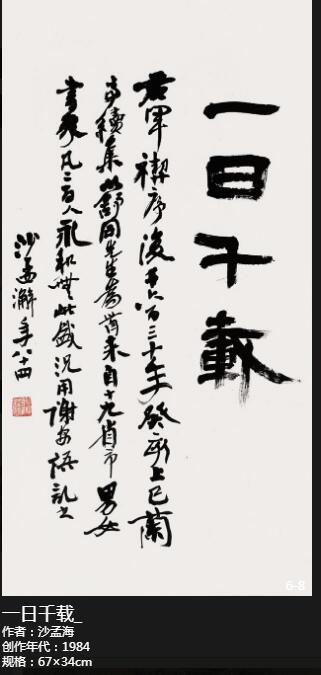 一日千載
右軍禊序後千六百三十年癸亥上巳蘭
亭續集以舒同先生為首來自十九省市男女
書家凡二百人永和無此盛況用謝安語記之
沙孟澥年八十四
6-8
一日千载_
作者：沙孟海
创作年代：1984
规格：67×34cm